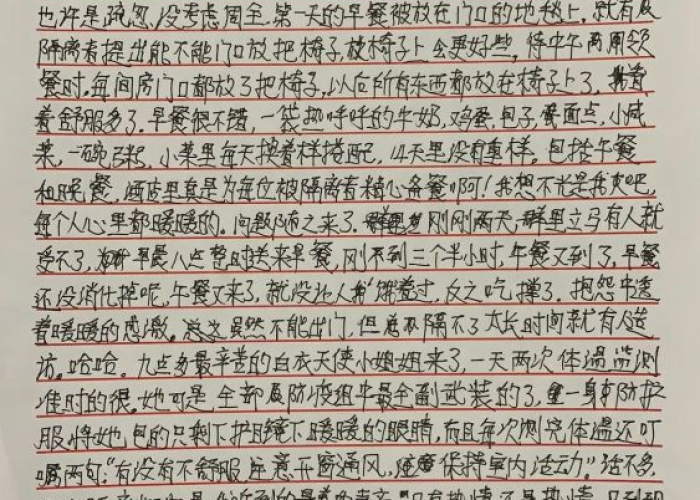 也许是疏忽,没考虑周全.第一天的早餐被放在门口的地毯上,就有
隔离者提出能不能门口放把椅子,放椅子上会更好些,待中午再用领
餐时.每间房门口都放了把椅子,以后所有东西都放在椅子上了,看
着舒服多了.早餐很不错,一袋热呼呼的牛奶,鸡蛋,包子,面点,小咸
菜,一碗粥,小菜里每天换着样搭配,14天里没有重样。包括午餐
和晚餐,酒店里真是为每位被隔离者精心备餐啊!我想不光是我吧,
每个人心里都暖暖的.问题随之来了.刚刚两天,群里立马有人就
受不了,早晨八点整时送来早餐,刚不到三个半小时,午餐又到了,早餐
还没消化掉呢,午餐又来了,就没还人饿着过,反之吃撑了.抱怨中透
着暖暖的感激。虽然不能出门,但隔不了太长时间就有人造
访。哈哈。九点多最辛苦的白衣天使小姐姐来了,一天两次体温监测
准时的很。她可是全部防疫组中最全副武装的了,一身防护
服将她包的只剩下护目镜下暖暖的眼睛,而且每次测完体温还叮
嘱两句:"有没有不舒服,注意开窗通风,保持室内活动."话不多.